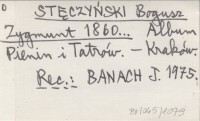 STĘCZYŃSKI Bogusz
Zygmunt 1860... Album
Pienin i Tatrów. - Kraków.
Rec.: BANACH J. 1975.